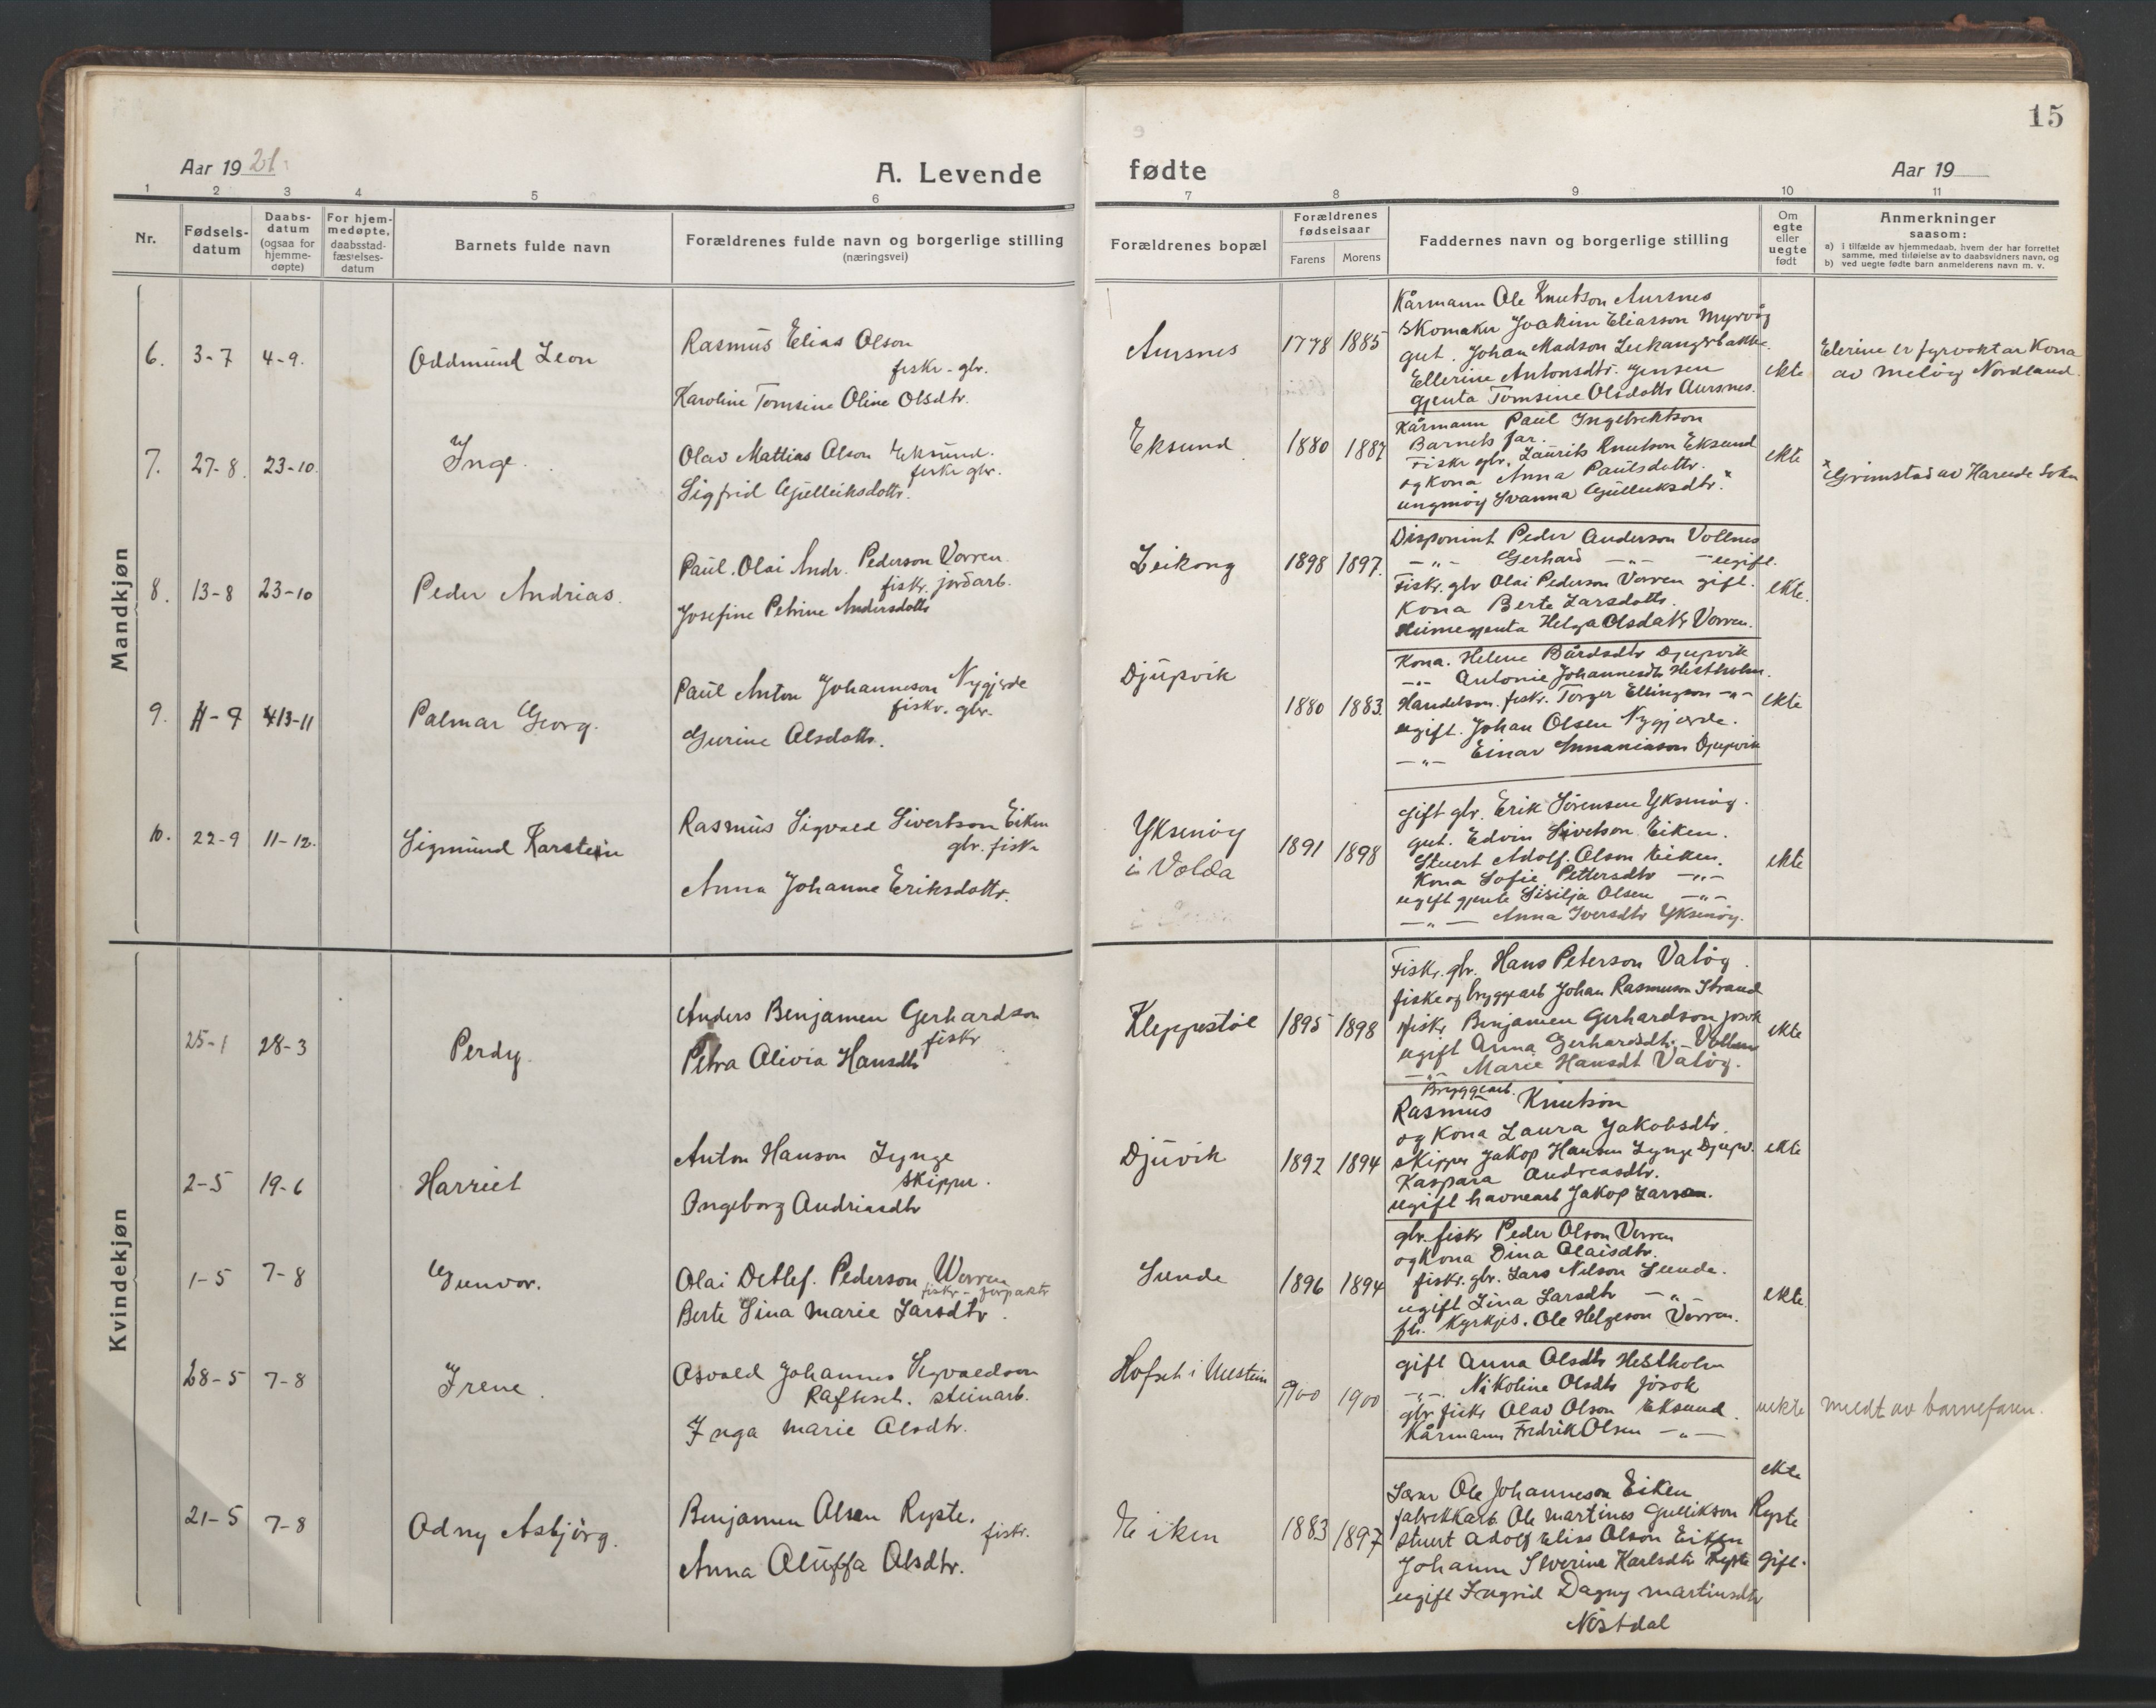 15
Aar 1921
A. Levende
fødte
Aar 19
1 2 3 4 5 6 7 8 9 10 11
Nr.
Fødsels-datum
Daabs-datum (ogsaa for hjemme-døpte)
For hjem-medøpte, daabsstad-fæstelses-datum
Barnets fulde navn
Forældrenes fulde navn og borgerlige stilling (næringsvei)
Forældrenes bopæl
Forældrenes fødselsaar
Farens Morens
Faddernes navn og borgerlige stilling
Om egte eller uegte født
Anmerkninger saasom:
a) i tilfælde av hjemmedaab, hvem der har forrettet samme, med tilføielse av to daabsvidners navn, og
b) ved uegte fødte barn anmelderens navn m. v.
Mandkjøn
6. 3-7 4-9.
Oddmund Leon
Rasmus Elias Olson
fiskr-gbr.
Karoline Tomsine Oline Olsdtr.
Aursnes
1778 1885
Kårmann Ole Knutson Aursnes
Skomaker Joakim Eliasson Myrvåg
gut. Johan Madson Leikangerbakke.
Ellerine Antonsdtr. Jensen
gjenta Tomsine Olsdottr Aursnes.
ekte
Elerine er fyrvoktar Kona
av Meløig Nordland.
7. 27-8. 23-10.
Inge.
Olav Mattias Olson Eksund.
fiskr gbr.
Sigfrid Gjulleiksdottr.
Eksund
1880 1887
Kårmann Paul Ingebriktson
Barnets far.
Fiskr gbr. Laurits Knutson Eksund
og Kona Anna Paulsdottr.
ungmøy Ivanna Gjulleiksdtr.
ekte
Grimstad av Hareide Sokn
8. 13-8 23-10
Peder Andrias.
Paul. Olai Andr. Pederson Vorren.
fiskr. jordarb.
Josefine Petrine Andersdottr
Leikong
1898 1897.
Disponint Peder Anderson Vollnes
-"- Gerhard -"- ugift.
Fiskr. gbr Olai Pederson Vorren gift.
Kona Berte Larsdottr.
Heimegjenta Helga Olsdatr Vorren.
ekte.
9. 11-9 13-11
Palmar Georg.
Paul Anton Johanneson Nygjerde
fiskr. gbr.
Gurine Olsdottr.
Djupvik
1880 1883.
Kona. Helene Bårdsdtr Djupvik
-"- Antonie Johannesdtr Hestholm.
Handelsm. fiskr. Torger Ellingson -"-
ugift. Johan Olsen Nygjerde.
-"- Einar Annaniason Djupvik
ekte
10. 22-9 11-12.
Sigmund Karstein
Rasmus Sigvald Sivertson Eiken
gbr. fiskr
Anna Johanne Eriksdottr.
Yksenøy
i Volda
1891 1898
gift gbr. Erik Sørensen Yksenøy.
gut. Edvin Sivetson Eiken.
Stuert Adolf. Olson Eiken.
Kona Sofie Pettersdtr -"-
ugift gjente Sisilja Olsen -"-
-"- Anna Iversdtr Yksenøy.
ekte
Kvindekjøn
25-1 28-3
Perdy.
Anders Benjamen Gerhardson
fiskr
Petra Olivia Hansdtr
Kleppestøl
1895 1898
Fiskr. gbr. Hans Peterson Valøy.
fiske og bryggearb Johan Rasmuson Strand
fiskr Benjamen Gerhardson Josok
ugift Anna Gerhardsdtr.
-"- Marie Hansdt Valøy.
ekte
2-5 19-6
Harriet
Anton Hanson Lynge
Skipper.
Ingeborg Andriasdtr
Djuvik
1892 1894
Bryggearb.
Rasmus Knutson
og Kona Laura Jakobsdtr.
Skipper Jakop Hansen Lynge Djupv.
Kaspara Andreasdtr.
ugift havnearb Jakop Larson.
ekte
1-5 7-8
Gunvor.
Olai Detlef. Pederson Worren
fiskr - forpaktr
Berte Lina Marie Larsdtr.
Sunde
1896 1894
gbr. fiskr Peder Olson Vorren
og Kona Dina Olaisdtr.
fiskr. gbr. Lars Nilson Sunde.
ugift Lina Larsdtr -"-
fh. Kyrkjes. Ole Helgeson Vorren.
ekte.
28-5 7-8
Irene.
Osvald Johannes Sigvaldson
Raftset. Steinarb.
Inga Marie Olsdtr.
Hofset i Ulstein
1900 1900
gift Anna Olsdtr Hestholm
-"-. Nikoline Olsdtr Josok
gbr. fiskr Olav Olson Eksund.
Kårmann Fredrik Olsen -"-
uekte
meldt av barnefaren.
21-5 7-8
Odny Asbjørg.
Benjamen Olsen Ryste.
fiskr.
Anna Oluffa Olsdtr.
Eiken
1883 1897
ekte
Ole Johanneson Eiken
fabrikkarb. Ole Martines Gullikson Ryste
Stuert Adolf Elias Olson Eiken
Johanne Severine Karlsdtr Ryste Gift.
ugift Ingrid Dagny Martinsdtr
Nøstdal